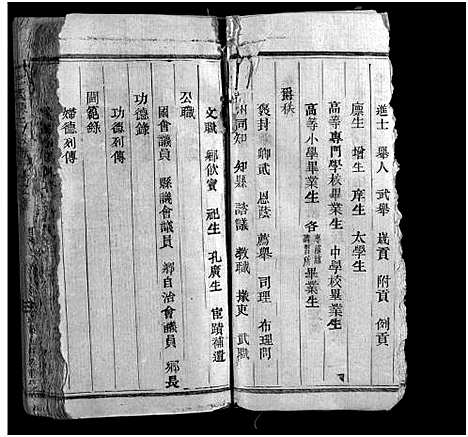 進士 舉人 武舉 歲貢 附貢 例貢
廩生 增生 庠生 太學生
高等專門學校畢業生 中學校畢業生
高等小學畢業生 各 畢業生
爵秩
褒封 卿貳 恩蔭 薦舉 司理 布理問
州同知 知縣 諮議 教職 掾吏 武職
文職 鄉飲賓 祀生 孔廣生 宦蹟補遺
公職
國會議員 縣議會議員 鄉自治會議員 鄉長
功德錄
功德列傳
閫範錄
婦德列傳